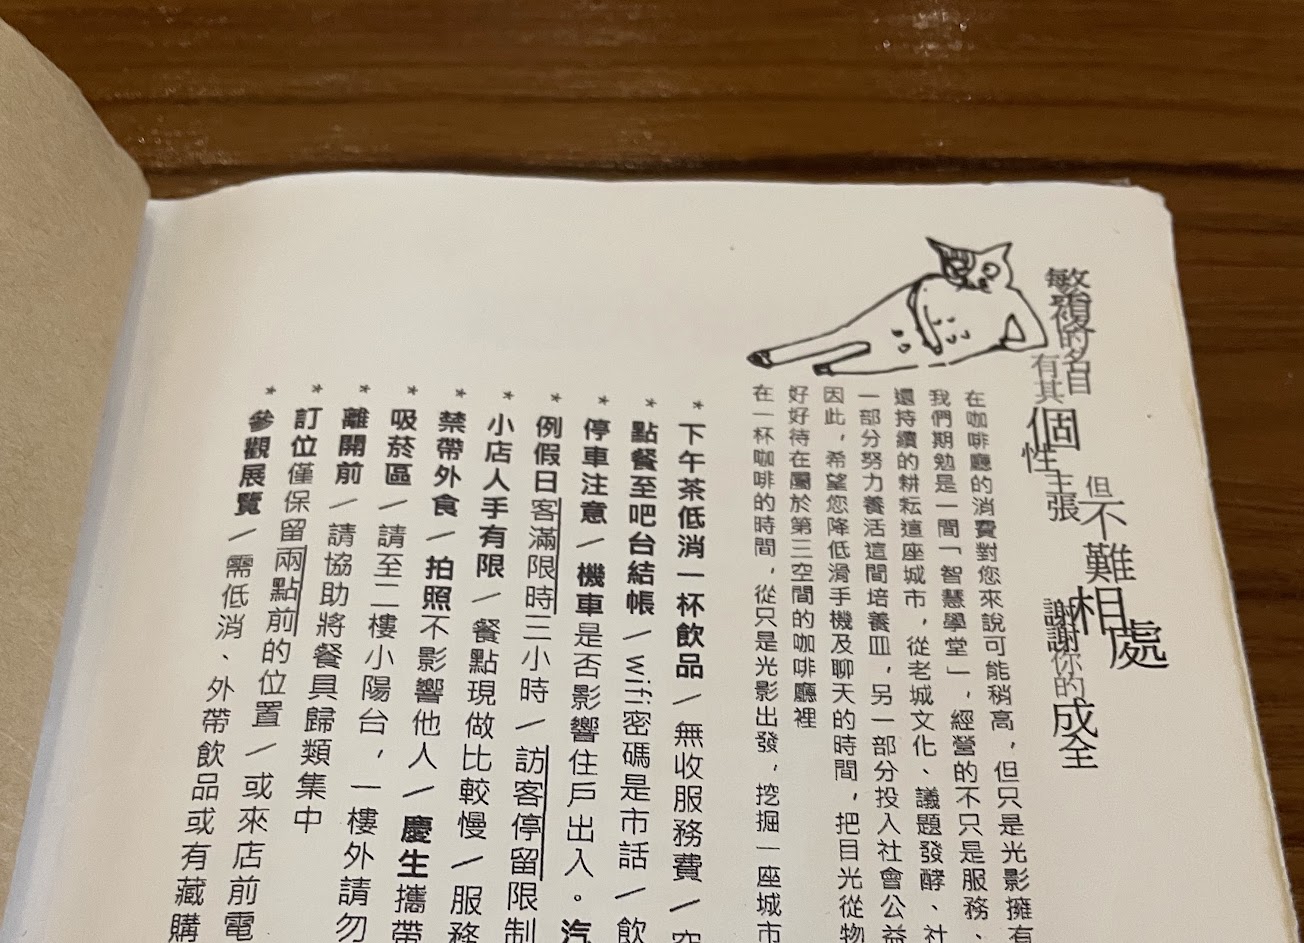 敏複的名目
有其個性主張
但不難相處
謝謝你的成全
在咖啡廳的消費對您來說可能稍高，但只是光影擁有
我們期勉是一間「智慧學堂」，經營的不只是服務、
還持續的耕耘這座城市，從老城文化、議題發酵、社
一部分努力養活這間培養皿，另一部分投入社會公益
因此，希望您降低滑手機及聊天的時間，把目光從物
好好待在屬於第三空間的咖啡廳裡
在一杯咖啡的時間，從只是光影出發，挖掘一座城市
* 下午茶低消一杯飲品／無收服務費／空
* 點餐至吧台結帳／wifi密碼是市話／飲
* 停車注意／機車是否影響住戶出入。汽
* 例假日客滿限時三小時／訪客停留限制
* 小店人手有限／餐點現做比較慢／服務
* 禁帶外食／拍照不影響他人／慶生攜帶
* 吸菸區／請至二樓小陽台，一樓外請勿
* 離開前／請協助將餐具歸類集中
* 訂位僅保留兩點前的位置／或來店前電
* 參觀展覽／需低消、外帶飲品或有藏購